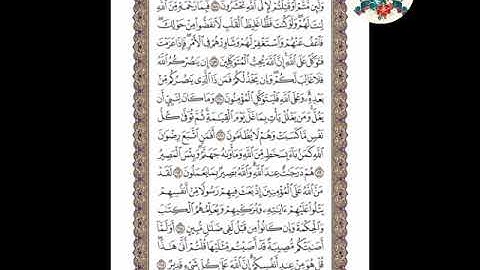 وَلَئِن مُّتُّمْ أَوْ قُتِلْتُمْ لَإِلَى ٱللَّهِ تُحْشَرُونَ ١٥٨ فَبِمَا رَحْمَةٍ مِّنَ ٱللَّهِ
لِنتَ لَهُمْ وَلَوْ كُنتَ فَظًّا غَلِيظَ ٱلْقَلْبِ لَٱنفَضُّوا۟ مِنْ حَوْلِكَ
فَٱعْفُ عَنْهُمْ وَٱسْتَغْفِرْ لَهُمْ وَشَاوِرْهُمْ فِى ٱلْأَمْرِ فَإِذَا عَزَمْتَ
فَتَوَكَّلْ عَلَى ٱللَّهِ إِنَّ ٱللَّهَ يُحِبُّ ٱلْمُتَوَكِّلِينَ ١٥٩ إِن يَنصُرْكُمُ ٱللَّهُ
فَلَا غَالِبَ لَكُمْ وَإِن يَخْذُلْكُمْ فَمَن ذَا ٱلَّذِى يَنصُرُكُم مِّنۢ
بَعْدِهِۦ وَعَلَى ٱللَّهِ فَلْيَتَوَكَّلِ ٱلْمُؤْمِنُونَ ١٦٠ وَمَا كَانَ لِنَبِىٍّ أَن
يَغُلَّ وَمَن يَغْلُلْ يَأْتِ بِمَا غَلَّ يَوْمَ ٱلْقِيَٰمَةِ ثُمَّ تُوَفَّىٰ كُلُّ
نَفْسٍ مَّا كَسَبَتْ وَهُمْ لَا يُظْلَمُونَ ١٦١ أَفَمَنِ ٱتَّبَعَ رِضْوَٰنَ
ٱللَّهِ كَمَنۢ بَآءَ بِسَخَطٍ مِّنَ ٱللَّهِ وَمَأْوَىٰهُ جَهَنَّمُ وَبِئْسَ ٱلْمَصِيرُ
١٦٢ هُمْ دَرَجَٰتٌ عِندَ ٱللَّهِ وَٱللَّهُ بَصِيرٌۢ بِمَا يَعْمَلُونَ ١٦٣ لَقَدْ
مَنَّ ٱللَّهُ عَلَى ٱلْمُؤْمِنِينَ إِذْ بَعَثَ فِيهِمْ رَسُولًا مِّنْ أَنفُسِهِمْ
يَتْلُوا۟ عَلَيْهِمْ ءَايَٰتِهِۦ وَيُزَكِّيهِمْ وَيُعَلِّمُهُمُ ٱلْكِتَٰبَ
وَٱلْحِكْمَةَ وَإِن كَانُوا۟ مِن قَبْلُ لَفِى ضَلَٰلٍ مُّبِينٍ ١٦٤ أَوَلَمَّآ
أَصَٰبَتْكُم مُّصِيبَةٌ قَدْ أَصَبْتُم مِّثْلَيْهَا قُلْتُمْ أَنَّىٰ هَٰذَا
قُلْ هُوَ مِنْ عِندِ أَنفُسِكُمْ إِنَّ ٱللَّهَ عَلَىٰ كُلِّ شَىْءٍ قَدِيرٌ ١٦٥